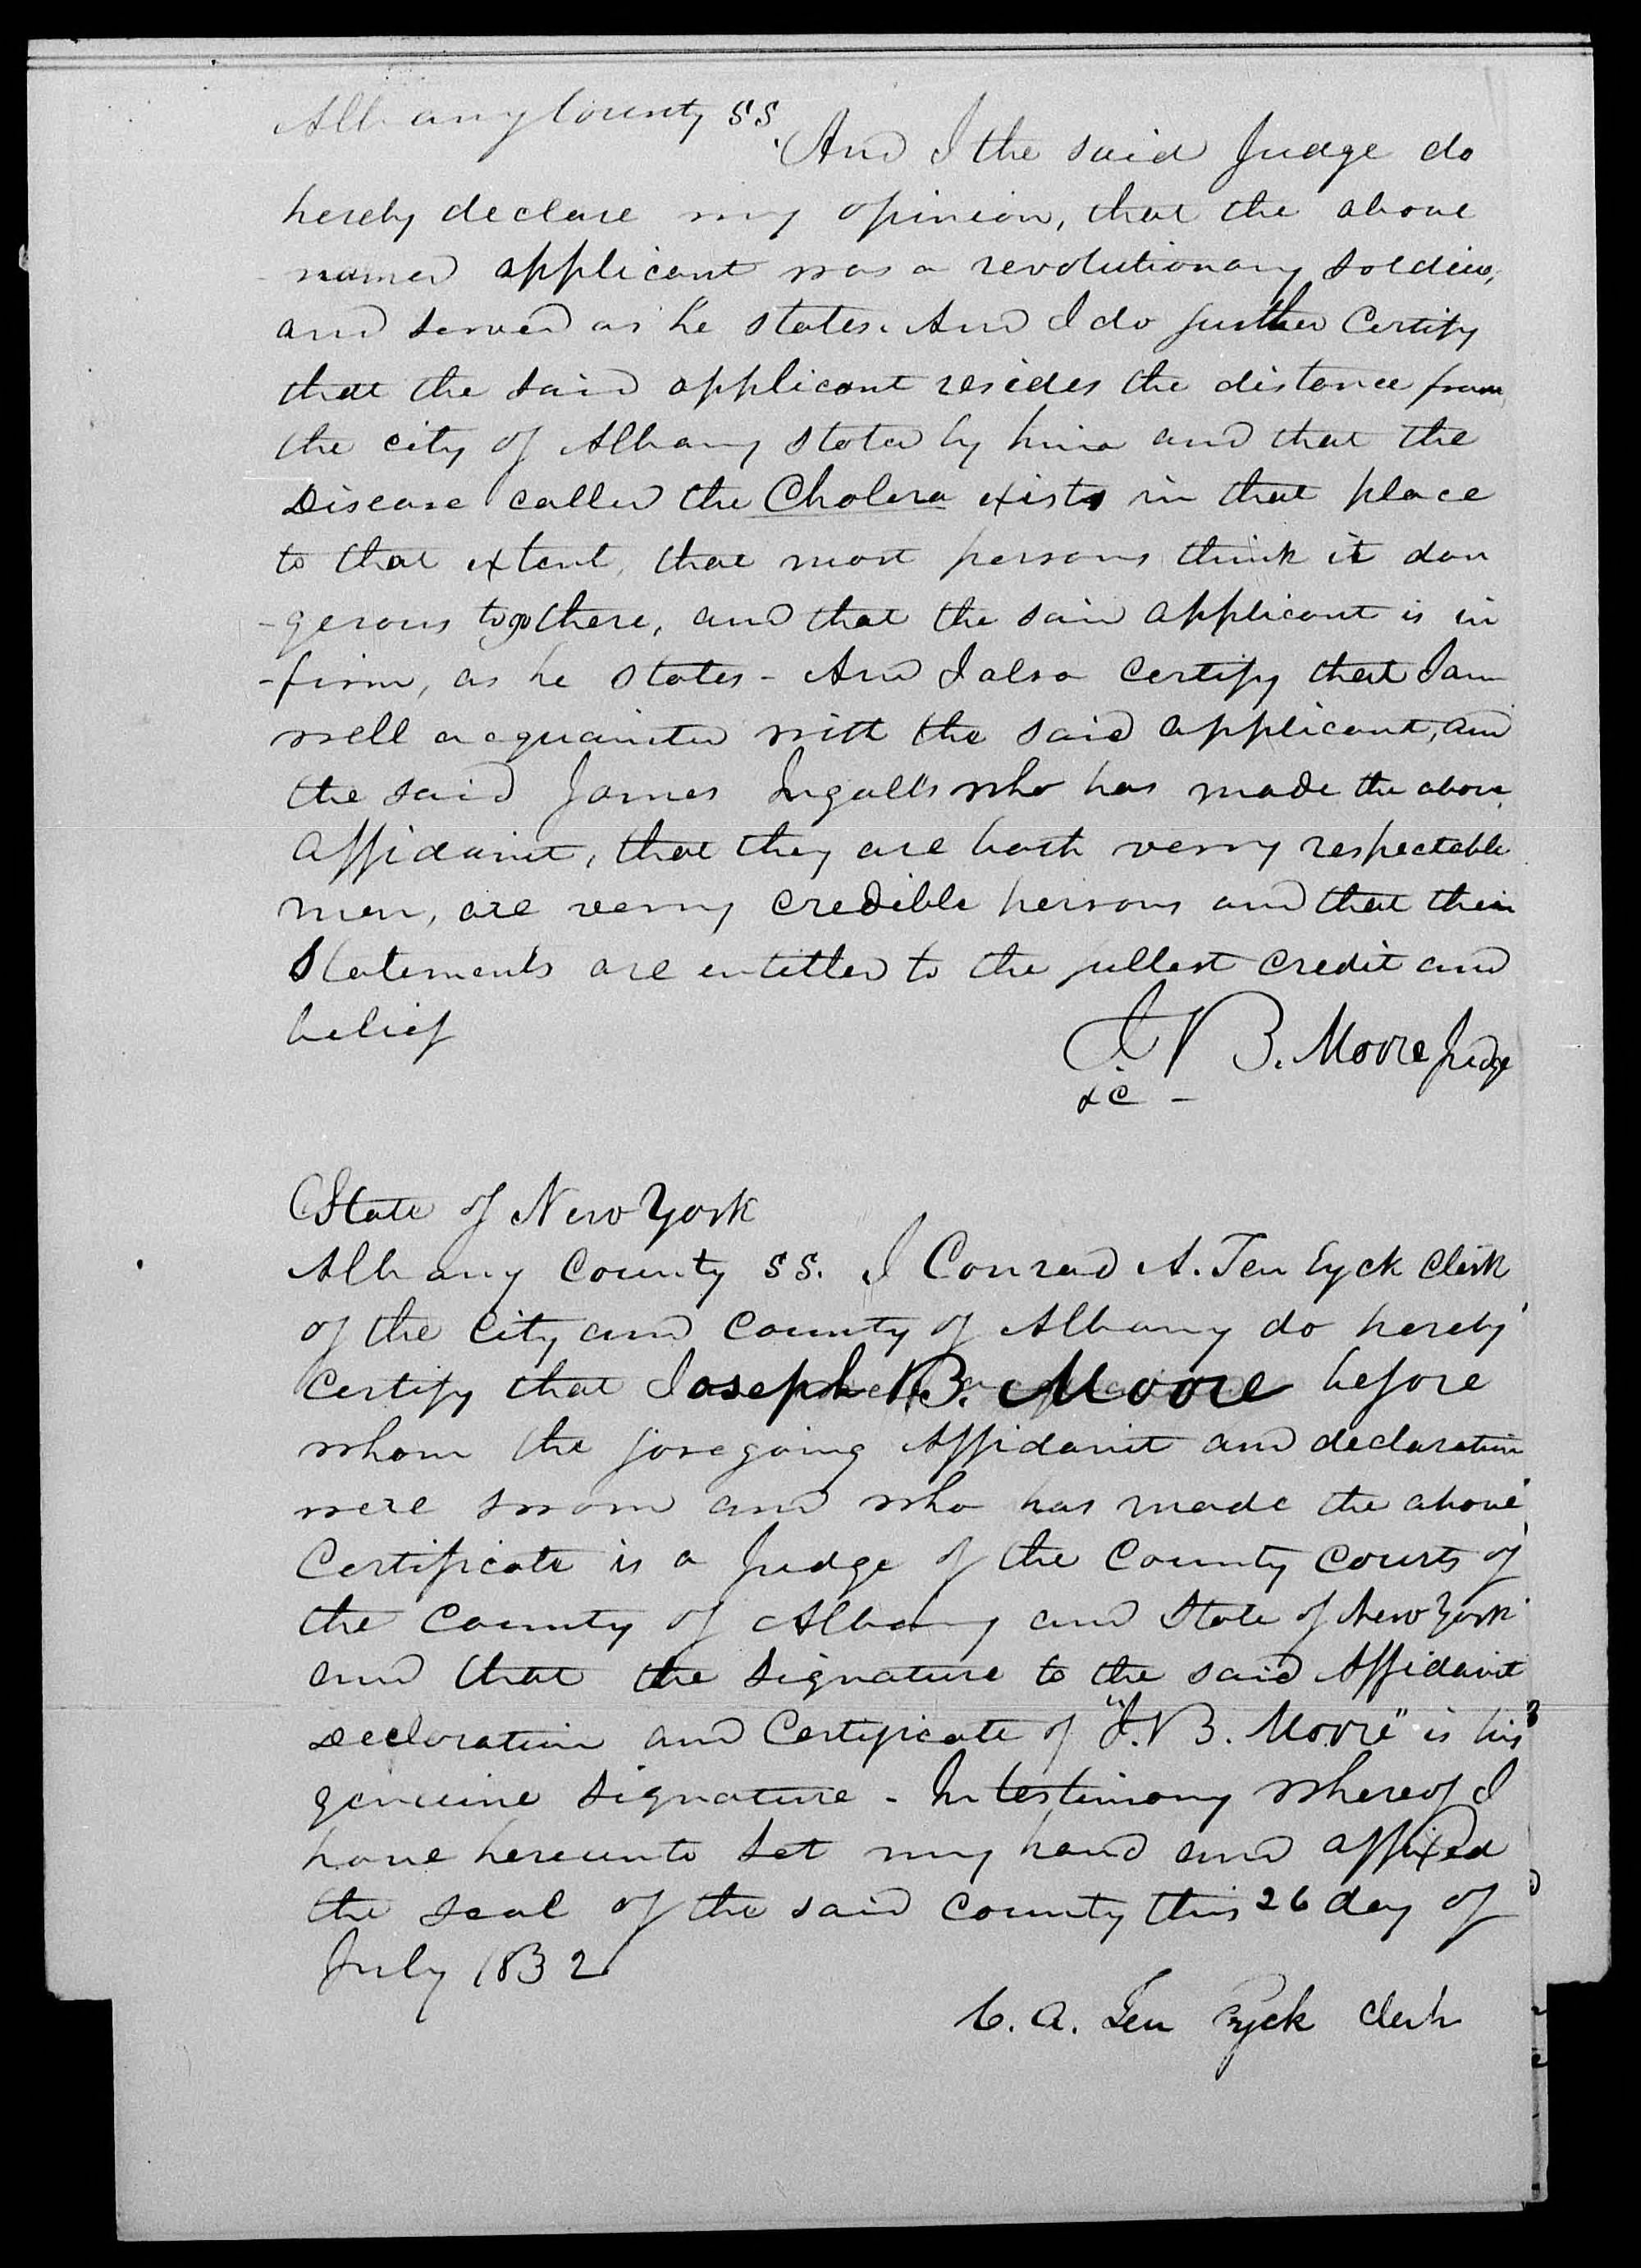 Albany County SS
And I the said Judge do
hereby declare my opinion, that the above
named applicant was a revolutionary soldier,
and served as he states. And I do further Certify
that the said applicant resides the distance from
the city of Albany stated by him and that the
Disease called the Cholera exists in that place
to that extent, that most persons think it dan
-gerous to go there, and that the said applicant is in
-firm, as he states - And I also Certify that I am
well acquainted with the said applicant, and
the said James Ingalls who has made the above
affidavit, that they are both verry respectable
men, are verry credible persons and that their
Statements are entitled to the fullest credit and
belief
J B. Moore Judge
&c -
State of New York
Albany County SS. I Conrad A. Ten Eyck Clerk
of the City and County of Albany do hereby
Certify that Joseph B. Moore before
whom the foregoing Affidavit and declaration
were sworn and who has made the above
Certificate is a Judge of the County Courts of
the County of Albany and State of New York
and that the signature to the said Affidavit
Declaration and Certificate of "J. B. Moore" is his
genuine signature - In testimony whereof I
have hereunto set my hand and affixed
the seal of the said County this 26 day of
July 1832
C. A. Ten Eyck Clerk